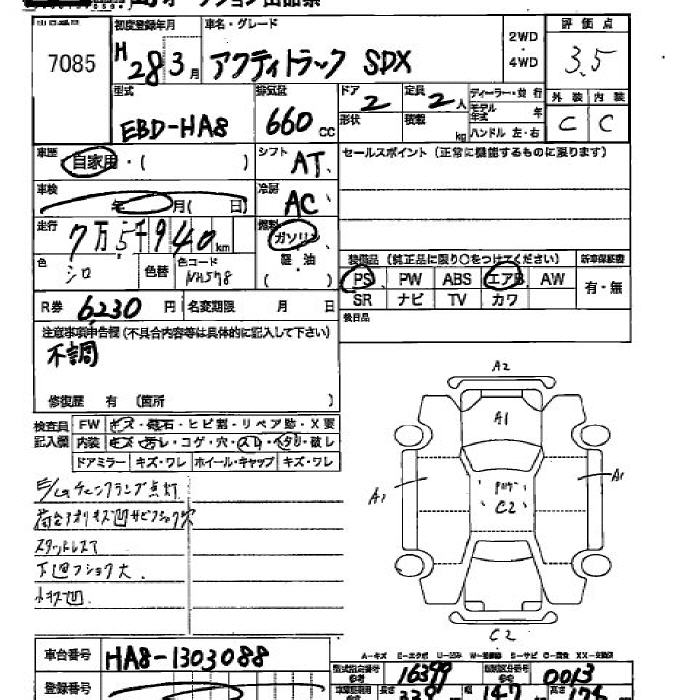 オークション出品票
7085
初度登録年月 H28 3月
車名・グレード アクティトラック SDX
2WD
・
4WD
評価点 3.5
外装 C 内装 C
型式 EBD-HA8
排気量 660 CC
ドア 2
定員 2人
形状
積載 kg
ディーラー・並行
モデル年式 年
ハンドル 左・右
車歴 自家用・( )
シフト AT
セールスポイント (正常に機能するものに限ります)
車検 年 月( 日)
冷房 AC
走行 7万5千940km
燃料 ガソリン
軽油
( )
色 シロ
色替
色コード NH578
装備品 (純正品に限り○をつけてください)
新車保証書
PS PW ABS エアB AW
有・無
SR ナビ TV カワ
後日品
R券 6230円
名変期限 月 日
注意事項申告欄 (不具合内容等は具体的に記入して下さい)
不調
修復歴 有 (箇所 )
検査員記入欄
FW キズ・飛石・ヒビ割・リペア跡・X要
内装 キズ・汚レ・コゲ・穴・スレ・ヘタリ・破レ
ドアミラー キズ・ワレ ホイール・キャップ キズ・ワレ
E/gチェックランプ点灯
荷台アオリキズ凹サビフショク穴
スタットレスT
下廻フショク大
小キズ凹
A2
A1
A1
A1
C2
C2
A-キズ E-エクボ U-凹み W-補修跡 S-サビ C-腐食 XX-交換済
車台番号 HA8-1303088
型式指定番号 参考 16399
類別区分番号 参考 0013
登録番号
長さ 339
幅 147
高さ 175